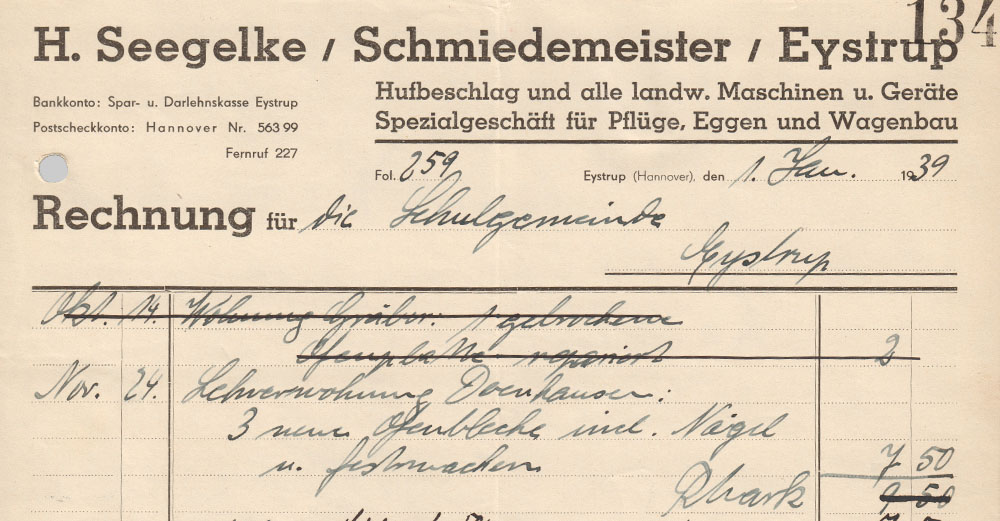 134
H. Seegelke / Schmiedemeister / Eystrup
Bankkonto: Spar- u. Darlehnskasse Eystrup
Postscheckkonto: Hannover Nr. 563 99
Fernruf 227
Hufbeschlag und alle landw. Maschinen u. Geräte
Spezialgeschäft für Pflüge, Eggen und Wagenbau
Fol. 259
Eystrup (Hannover), den 1. Jan. 1939
Rechnung für die Schulgemeinde
Eystrup
Okt. 14. Wohnung Gräber: 1 gebrochene
Ofenplatte repariert 2
Nov. 24. Lehrerwohnung
3 neue Ofenbleche incl. Nägel
u. festmachen 7 50
RMark 9 50